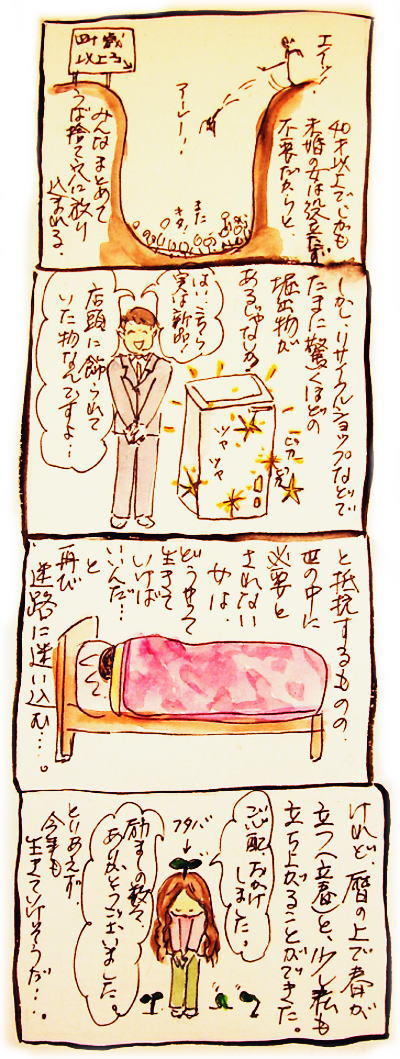 エイッ!
40才以上でしかも
未婚の女は役立たず、
不要だからと、
アーレー!!
また
キタ!
以上ろ
みんなまとめて
うば捨て穴に放り
込まれる。
しかし、リサイクルショップなどで
たまに驚くほどの
堀出物が
あるじゃないか?
はい、こちら
実は新品!
店頭に飾られて
いた物なんですよ…
ツヤ
ツヤ
と抵抗するものの、
世の中に
必要と
されない
女は、
どうやって
生きて
いけば
いいんだ…
と
再び
迷路に迷い込む…。
けれど、暦の上で春が
立つ(立春)と、少し私も
立ち上がることができた。
ご心配おかけ
しました。
フタバ
励ましの数々、
ありがとうございました。
とりあえず、
今年も
生きていけそうだ…。